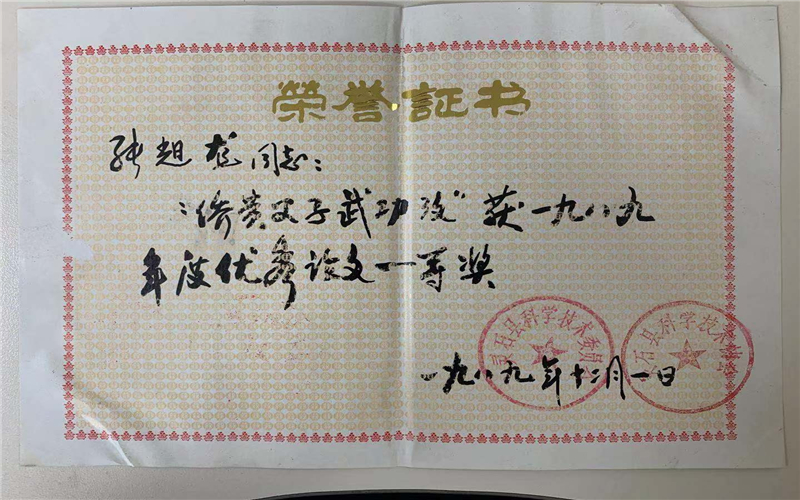 榮誉証书
张 龙同志:
“侨贵父子武功 ”获一九八九
年度优秀论文一等奖
灵石县科学技术委员
石县科学技术协会
一九八九年十二月一日